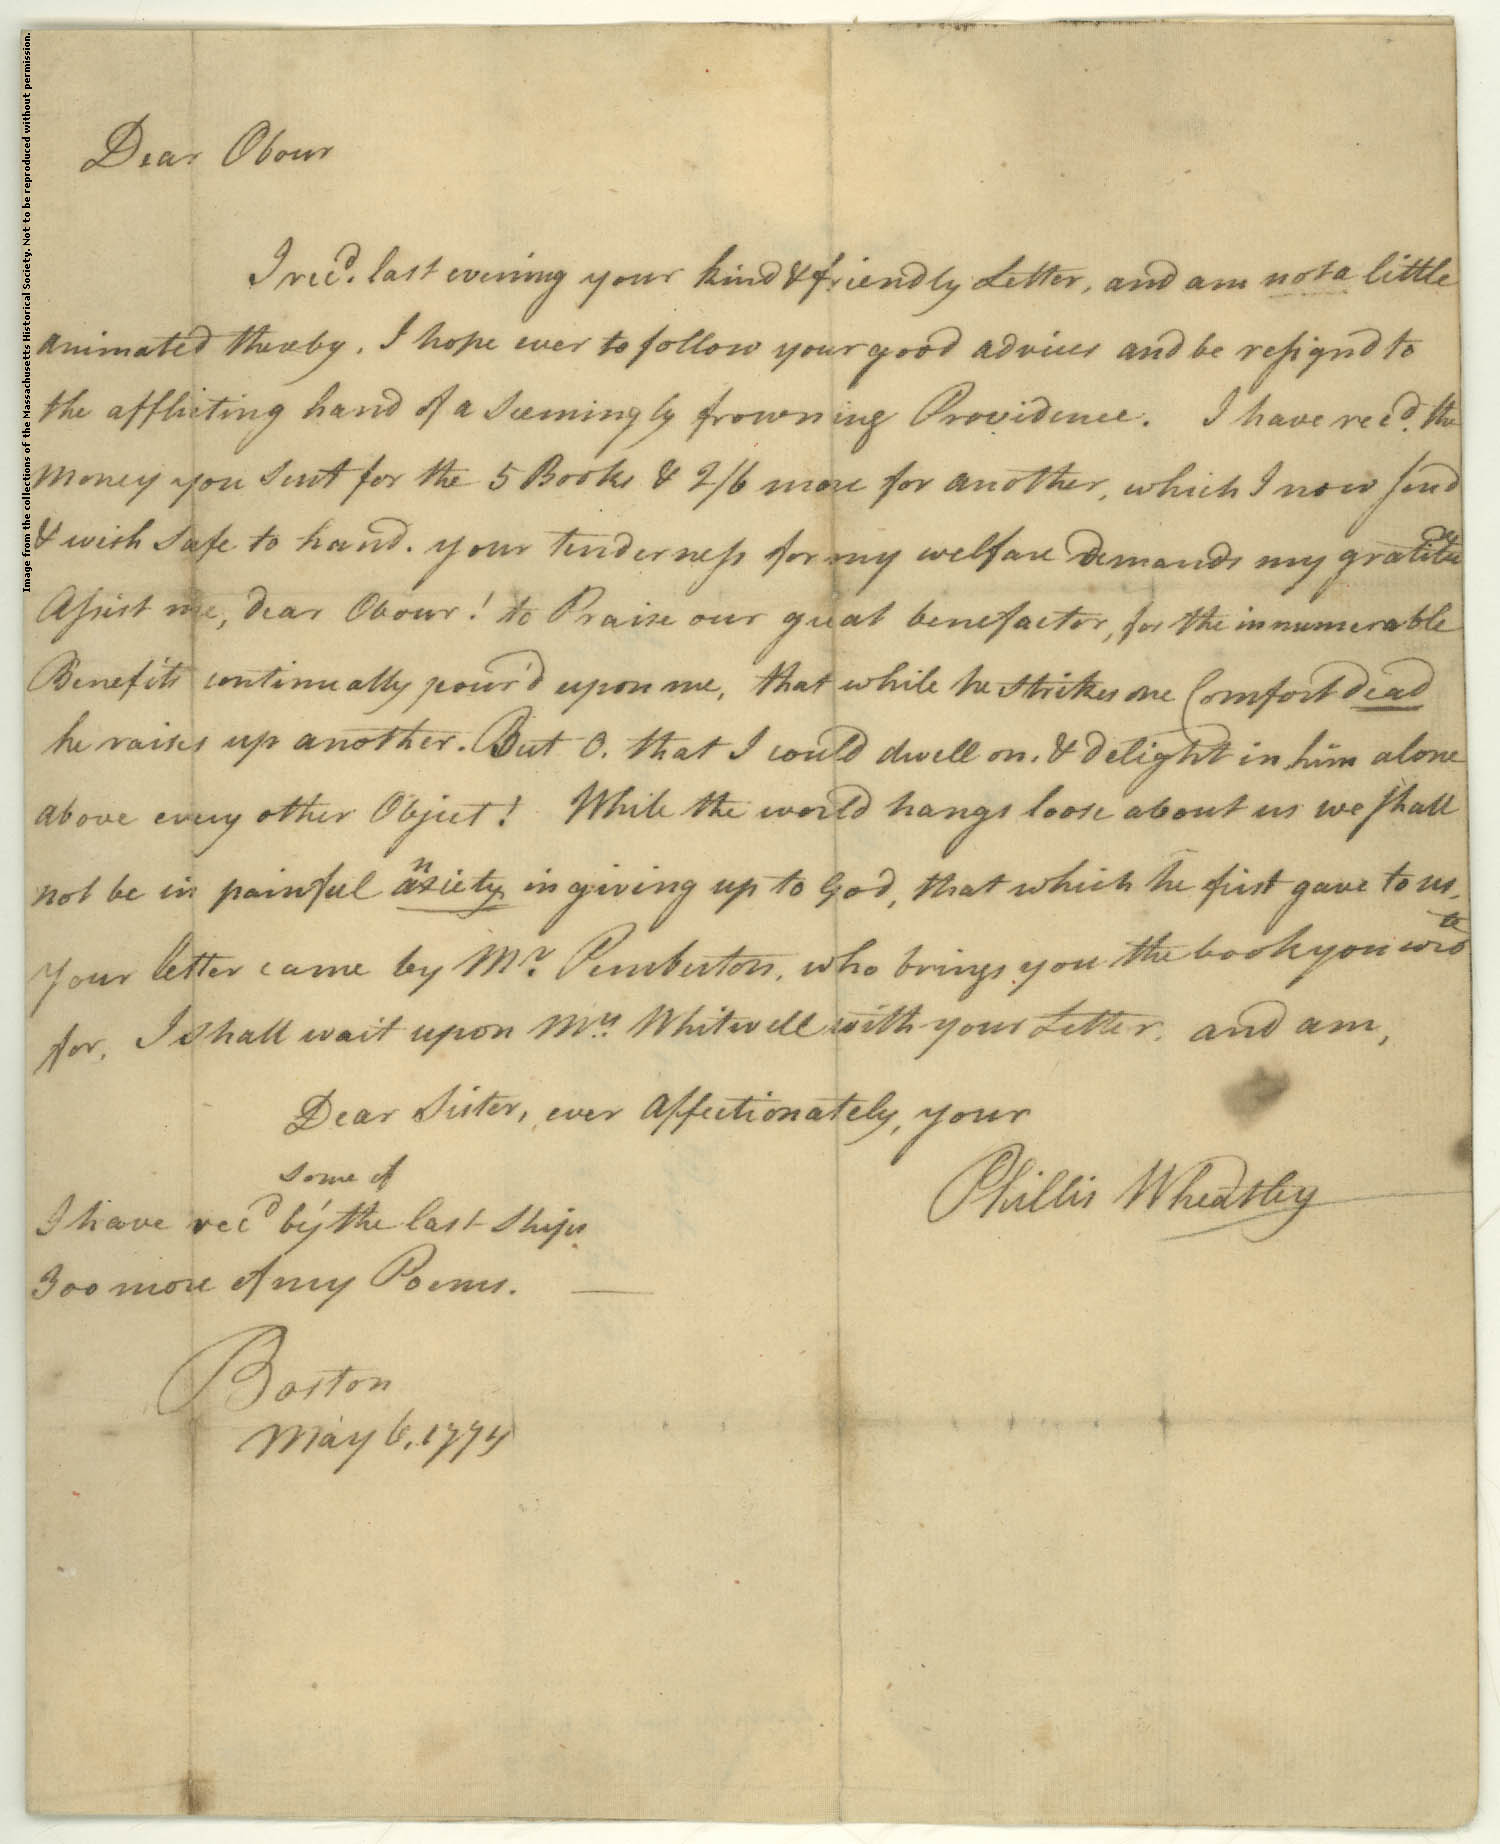 Image from the collections of the Massachusetts Historical Society. Not to be reproduced without permission.
Dear Obour
I rec'd. last evening your kind & friendly Letter, and am not a little
animated thereby. I hope ever to follow your good advices and be resignd to
the afflicting hand of a seemingly frowning Providence. I have rec'd. the
money you sent for the 5 Books & 2/6 more for another, which I now send
& wish safe to hand. your tenderness for my welfare demands my gratitude
Assist me, dear Obour! to Praise our great benefactor, for the innumerable
Benefits continually pour'd upon me, that while he strikes one Comfort dead
he raises up another. But O, that I could dwell on, & delight in him alone
above every other Object! While the world hangs loose about us we shall
not be in painful anxiety in giving up to God, that which he first gave to us.
Your letter came by Mr. Pemberton, who brings you the book you write
for, I shall wait upon Mrs. Whitwell with your Letter. and am,
Dear Sister, ever affectionately, your
Phillis Wheatley
some of
I have rec'd by the last ships
300 more of my Poems.
Boston
May 6, 1774